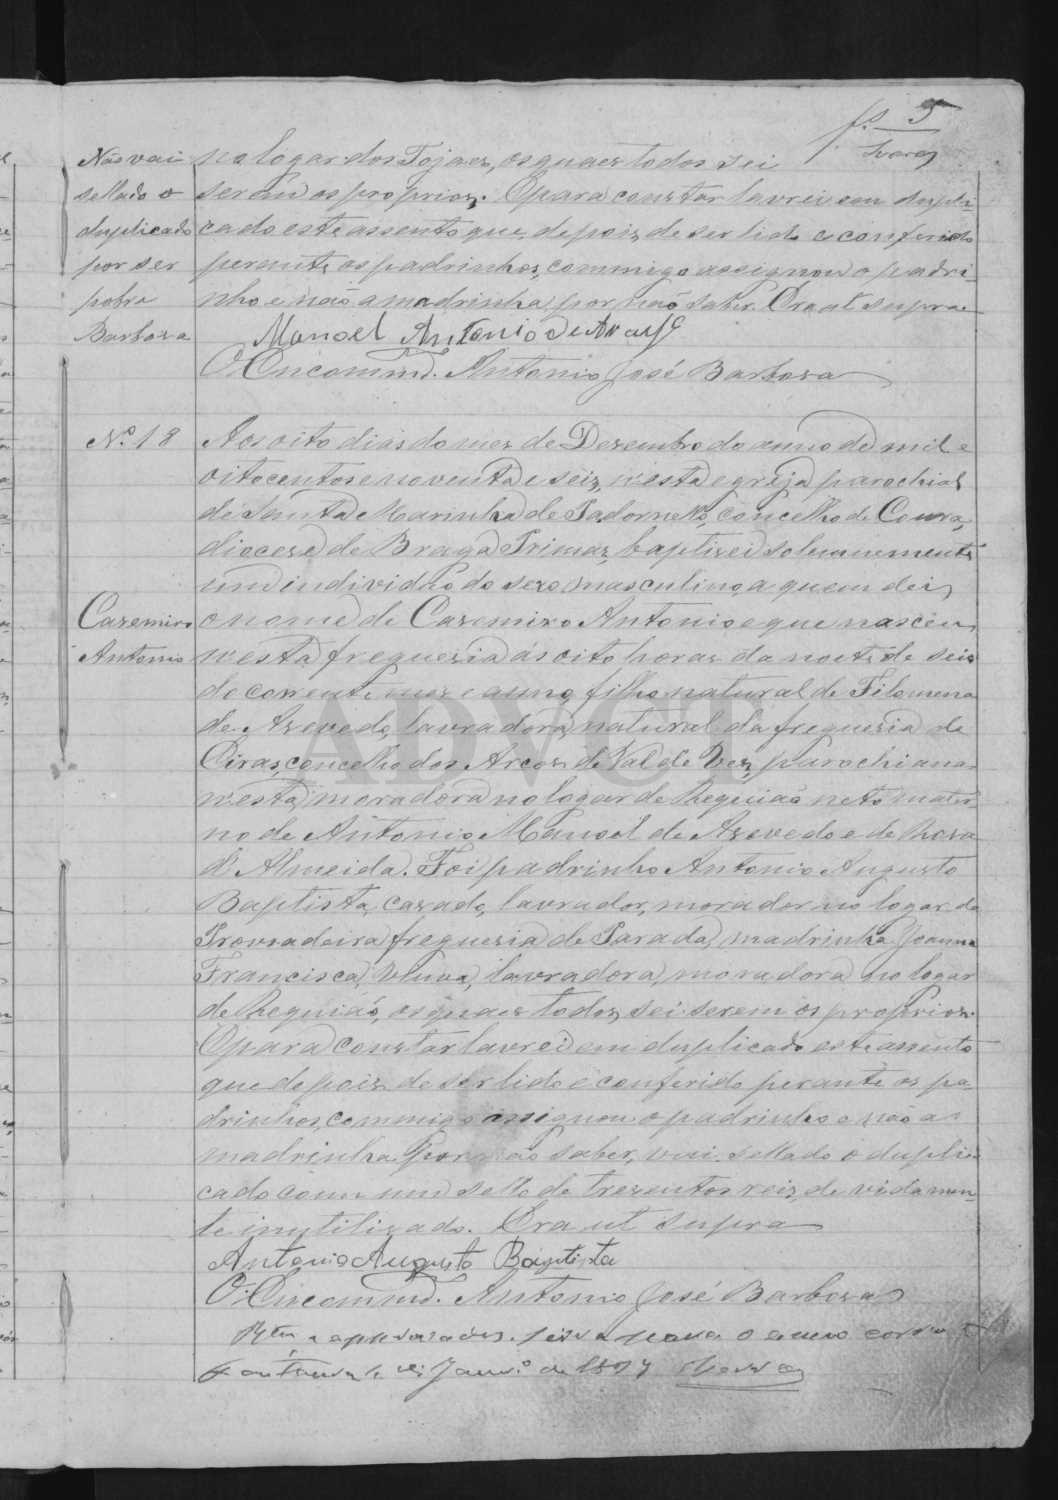 fs 5
Não vai
sellado o
duplicado
por ser
pobre
Barbosa
no logar dos Tojaes, os quaes todos sei
serem os proprios. E para constar lavrei em dupli-
cado este assento que, depois de ser lido e conferido
perante os padrinhos, commigo assignou o padri-
nho e não a madrinha por não saber. Era ut supra
Manoel Antonio de Araujo
O Encommd. Antonio José Barbosa
Nº 18
Casemiro
Antonio
Aos oito dias do mez de Dezembro do anno de mil e
oitocentos e noventa e seis, n'esta egreja parochial
de Santa Marinha de Padornello, concelho de Coura,
diocese de Braga Primaz, baptisei solemnemente
um individuo do sexo masculino, a quem dei
o nome de Casemiro Antonio e que nasceu
n'esta freguesia ás oito horas da noite de seis
do corrente mez e anno, filho natural de Filomena
de Azevedo, lavradora, natural da freguesia de
Eiras, concelho dos Arcos de Val de Vez, parochiana
n'esta, moradora no logar de Requião, neto mater-
no de Antonio Manoel de Azevedo e de Rosa
d'Almeida. Foi padrinho Antonio Augusto
Baptista, casado, lavrador, morador no logar da
freguesia de Parada, madrinha Joanna
Francisca, viuva, lavradora, moradora no logar
de Requião, os quaes todos sei serem os proprios.
E para constar lavrei em duplicado este assento
que depois de ser lido e conferido perante os pa-
drinhos, commigo assignou o padrinho e não a
madrinha por não saber, vai sellado o dupli-
cado com um sello de trezentos reis, devidamen-
te inutilisado. Era ut supra
Antonio Augusto Baptista
O Encommd. Antonio José Barbosa
para o anno
de Janrº de 1897
ADVCT